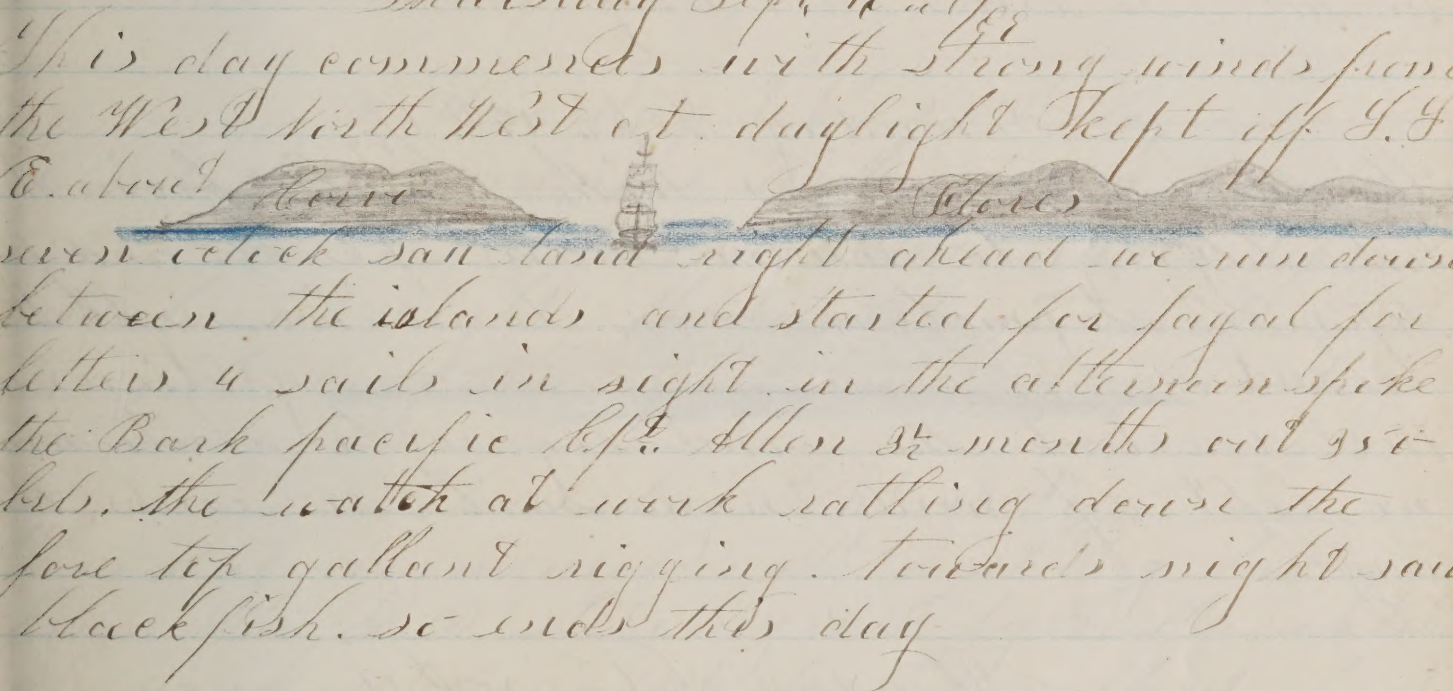 Thursday Sept.
This day commences with strong winds from
the West North West at daylight kept off S. S
E. about Corvo Flores
seven oclock saw land right ahead we run down
between the islands and started for fayal for
letters 4 sails in sight in the afternoon spoke
the Bark pacific Cpt. Allen 3½ months out 350
bls. the watch at work ratling down the
fore top gallant rigging. towards night saw
blackfish. so ends this day